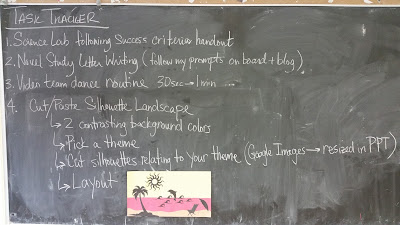 TASK TRACKER
1. Science Lab following success criteria handout
2. Novel Study Letter Writing (follow my prompts on board + blog)
3. Video team dance routine 30sec → 1 min ...
4. Cut/Paste Silhouette Landscape
↳ 2 contrasting background colors
↳ Pick a theme
↳ Cut silhouettes relating to your theme (Google Images → resized in PPT)
↳ Layout